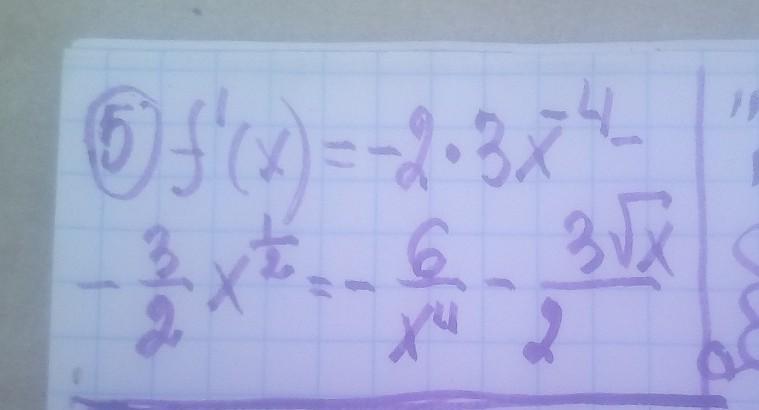 ⑤ f'(x) = -2·3x⁻⁴ -
- 3/2 x^(1/2) = - 6/x⁴ - 3√x/2